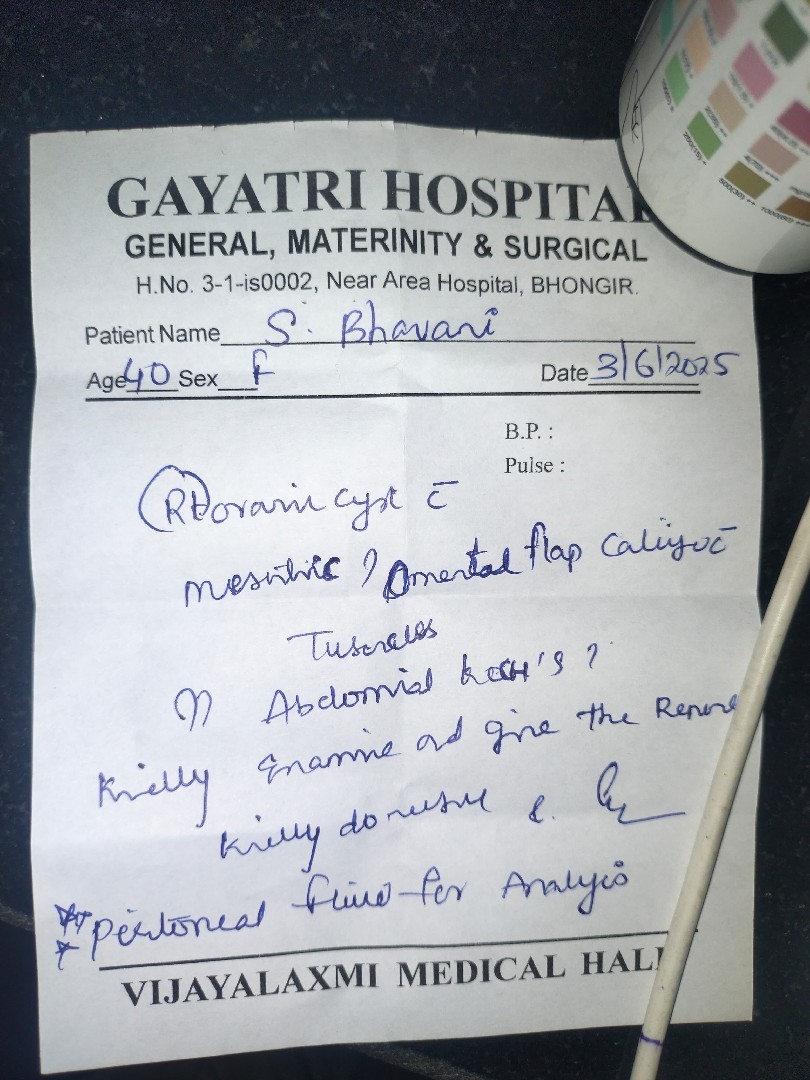 GAYATRI HOSPITAL
GENERAL, MATERINITY & SURGICAL
H.No. 3-1-is0002, Near Area Hospital, BHONGIR.
Patient Name S. Bhavani
Age 40 Sex F Date 3/6/2025
B.P. :
Pulse :
Rt ovarin cyst c̄
mesentric ? Omental flap
Abdomial KOCH'S ?
Kindly Examine and give the
Kindly do
Peritoneal fluid for Analysis
VIJAYALAXMI MEDICAL HALL